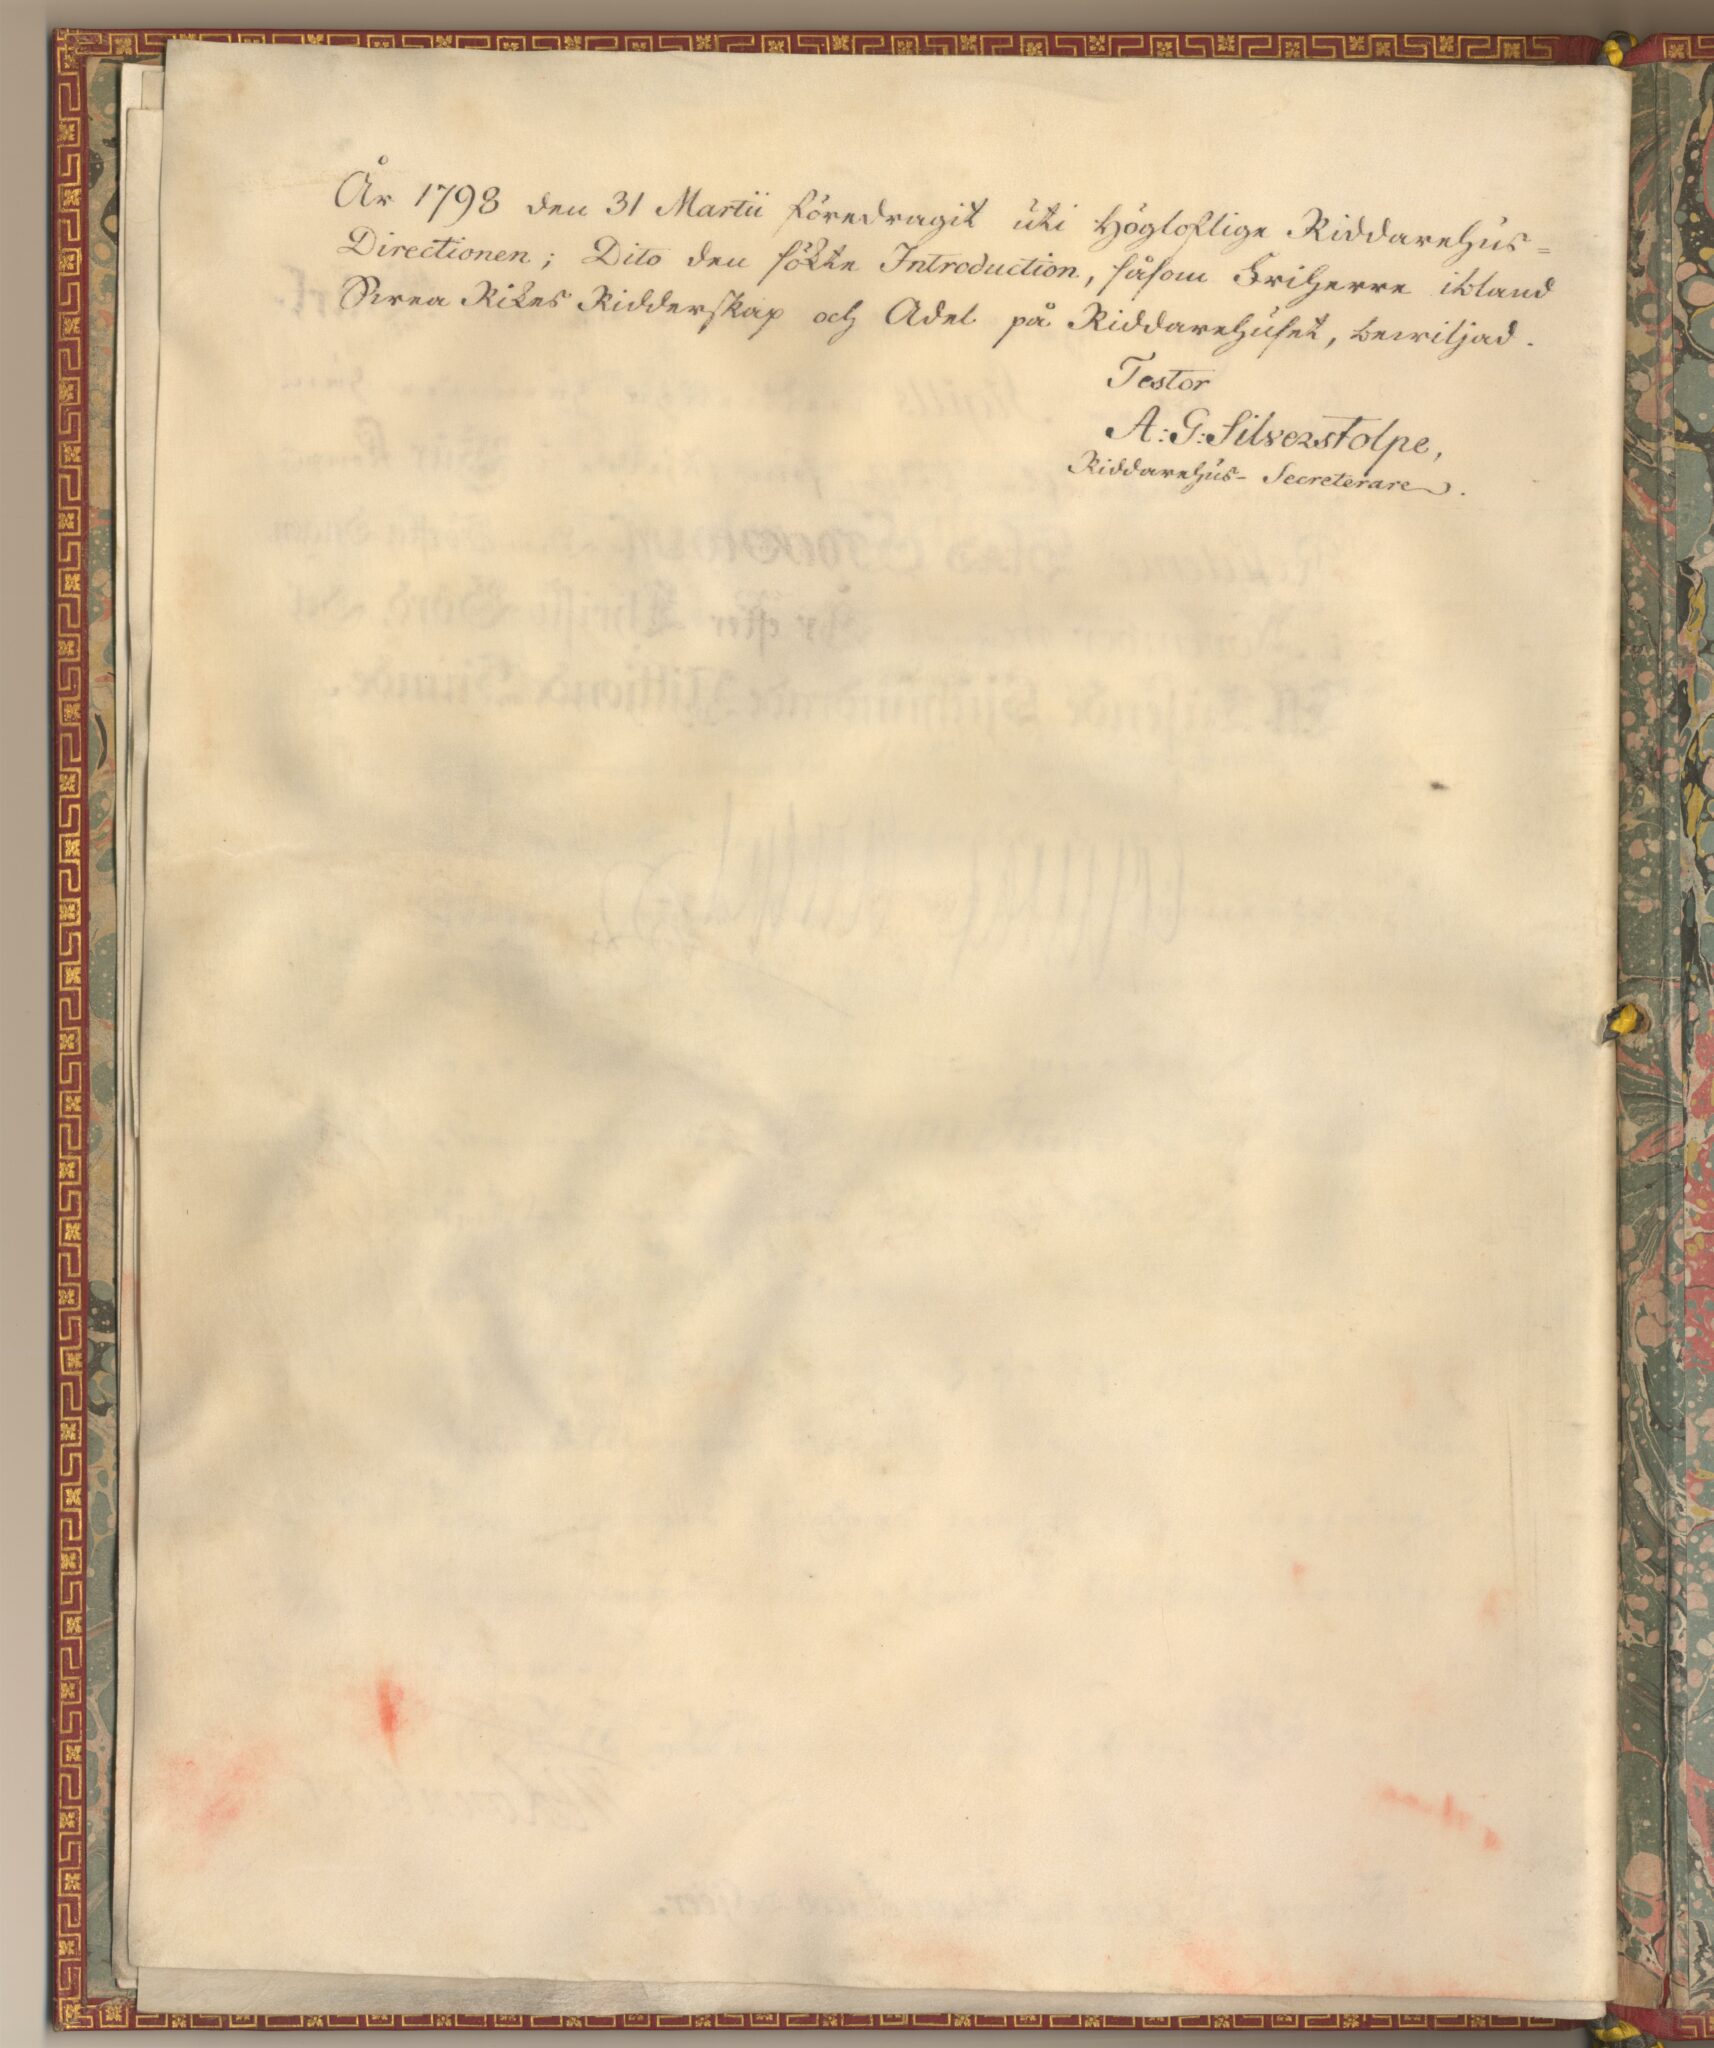 År 1798 den 31 Martii föredragit uti Högloflige Riddarehus=
Directionen; Dito den sökte Introduction, såsom Friherre ibland
Svea Rikes Ridderskap och Adel på Riddarehuset, bewiljad.
Testor
A: G: Silverstolpe,
Riddarehus- Secreterare.